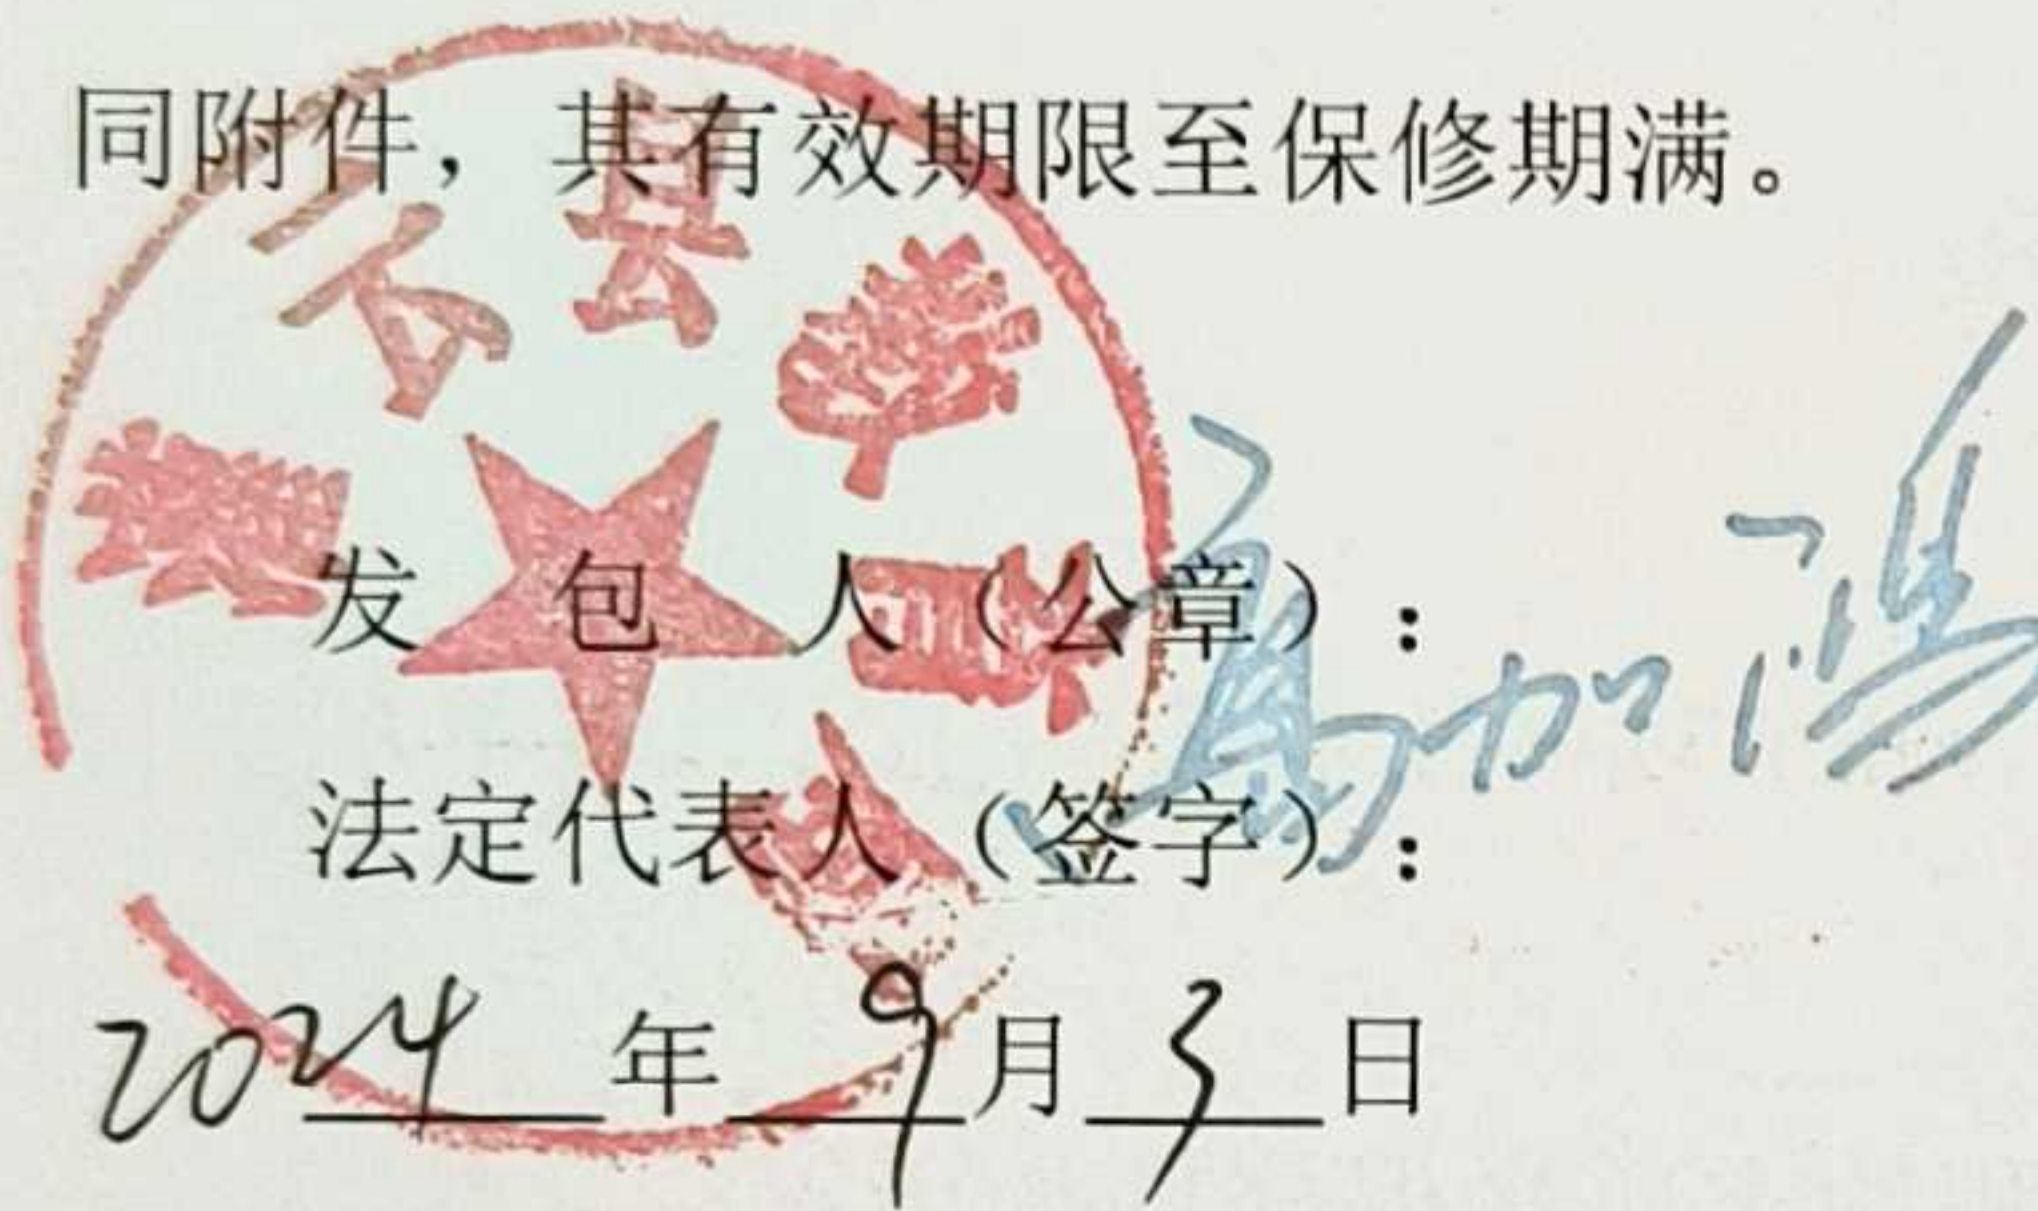 同附件，其有效期限至保修期满。
云县
发 包 人（公章）：
法定代表人（签字）：
2024 年 9 月 3 日